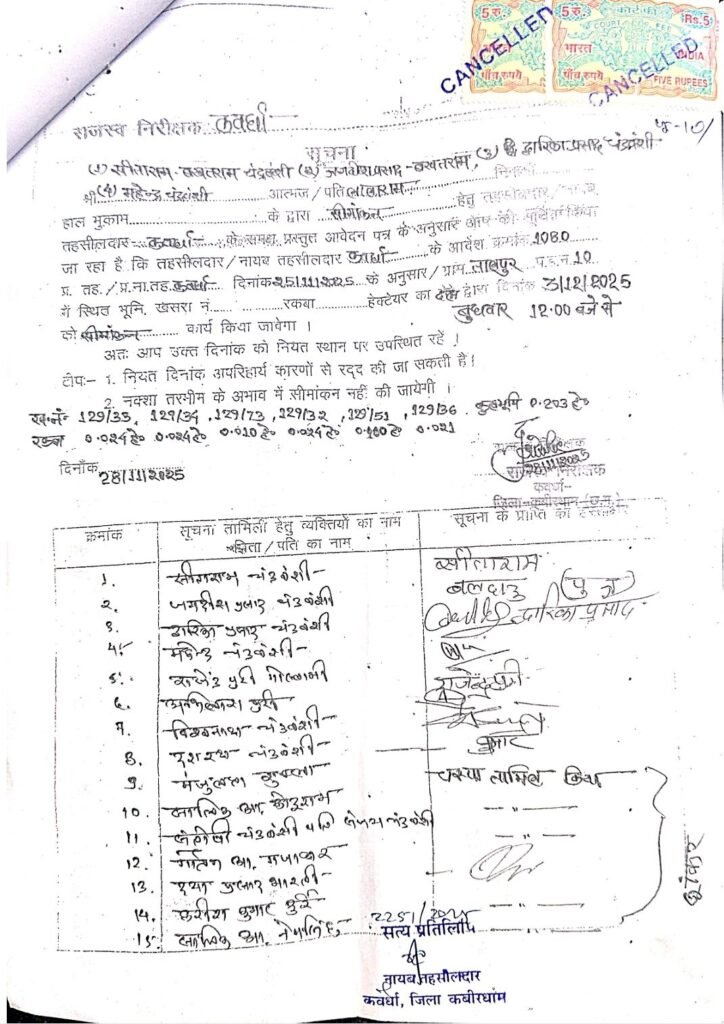 5 रु. कोर्ट फी Rs.5
COURT FEE
भारत INDIA
पाँच रूपये FIVE RUPEES
CANCELLED
CANCELLED
राजस्व निरीक्षक कवर्धा
सूचना
(1) सीताराम-बखतराम चंद्रवंशी (2) जगदीश प्रसाद-बखतराम, (3) द्वारिका प्रसाद चंद्रवंशी
श्री (4) महेन्द्र चंद्रवंशी आत्मज/पति लालाराम निवासी
हाल मुकाम के द्वारा सीमांकन हेतु तहसीलदार/नायब
तहसीलदार कवर्धा के समक्ष प्रस्तुत आवेदन पत्र के अनुसार आप को सूचित किया
जा रहा है कि तहसीलदार/नायब तहसीलदार कवर्धा के आदेश क्रमांक 1080
प्र. तह./प्र.ना.तह. कवर्धा दिनांक 25/11/2025 के अनुसार/ग्राम लालपुर प.ह.न. 10
में स्थित भूमि, खसरा नं. रकबा हेक्टेयर का मेरे द्वारा दिनांक 3/12/2025
को सीमांकन कार्य किया जावेगा । बुधवार 12.00 बजे से
अतः आप उक्त दिनांक को नियत स्थान पर उपस्थित रहें ।
टीपः- 1. नियत दिनांक अपरिहार्य कारणों से रद्द की जा सकती है।
2. नक्शा तरमीम के अभाव में सीमांकन नहीं की जायेगी ।
ख.नं- 129/33, 129/34, 129/73, 129/32, 129/51, 129/36 कुल भूमि 0.203 हे०
रकबा 0.024 हे० 0.024 हे० 0.010 हे० 0.024 हे० 0.100 हे० 0.021
दिनांक 28/11/2025
28/11/2025
राजस्व निरीक्षक
कवर्धा
जिला-कबीरधाम (छ.ग.)
क्रमांक
सूचना तामिली हेतु व्यक्तियों का नाम
पिता/पति का नाम
सूचना के प्राप्ति का हस्ताक्षर
1. सीताराम चंद्रवंशी सीताराम
2. जगदीश प्रसाद चंद्रवंशी बलदाउ (पुत्र)
3. द्वारिका प्रसाद चंद्रवंशी द्वारिका प्रसाद
4. महेन्द्र चंद्रवंशी
5. राजेंद्र पुरी गोस्वामी राजेन्द्र पुरी
6. पुरी
7. विश्वनाथ चंद्रवंशी
8. दशरथ चंद्रवंशी कुमार
9. मंजुलता शुक्ला चस्पा तामिल किया
10. मालिक आ. -- " --
11. चंद्रवंशी पति चंद्रवंशी -- " --
12. आ.
13. दया प्रसाद
14. कुमार दुबे -- " --
15. मालिक आ. -- " --
2251/2025
सत्य प्रतिलिपि
नायब तहसीलदार
कवर्धा, जिला कबीरधाम